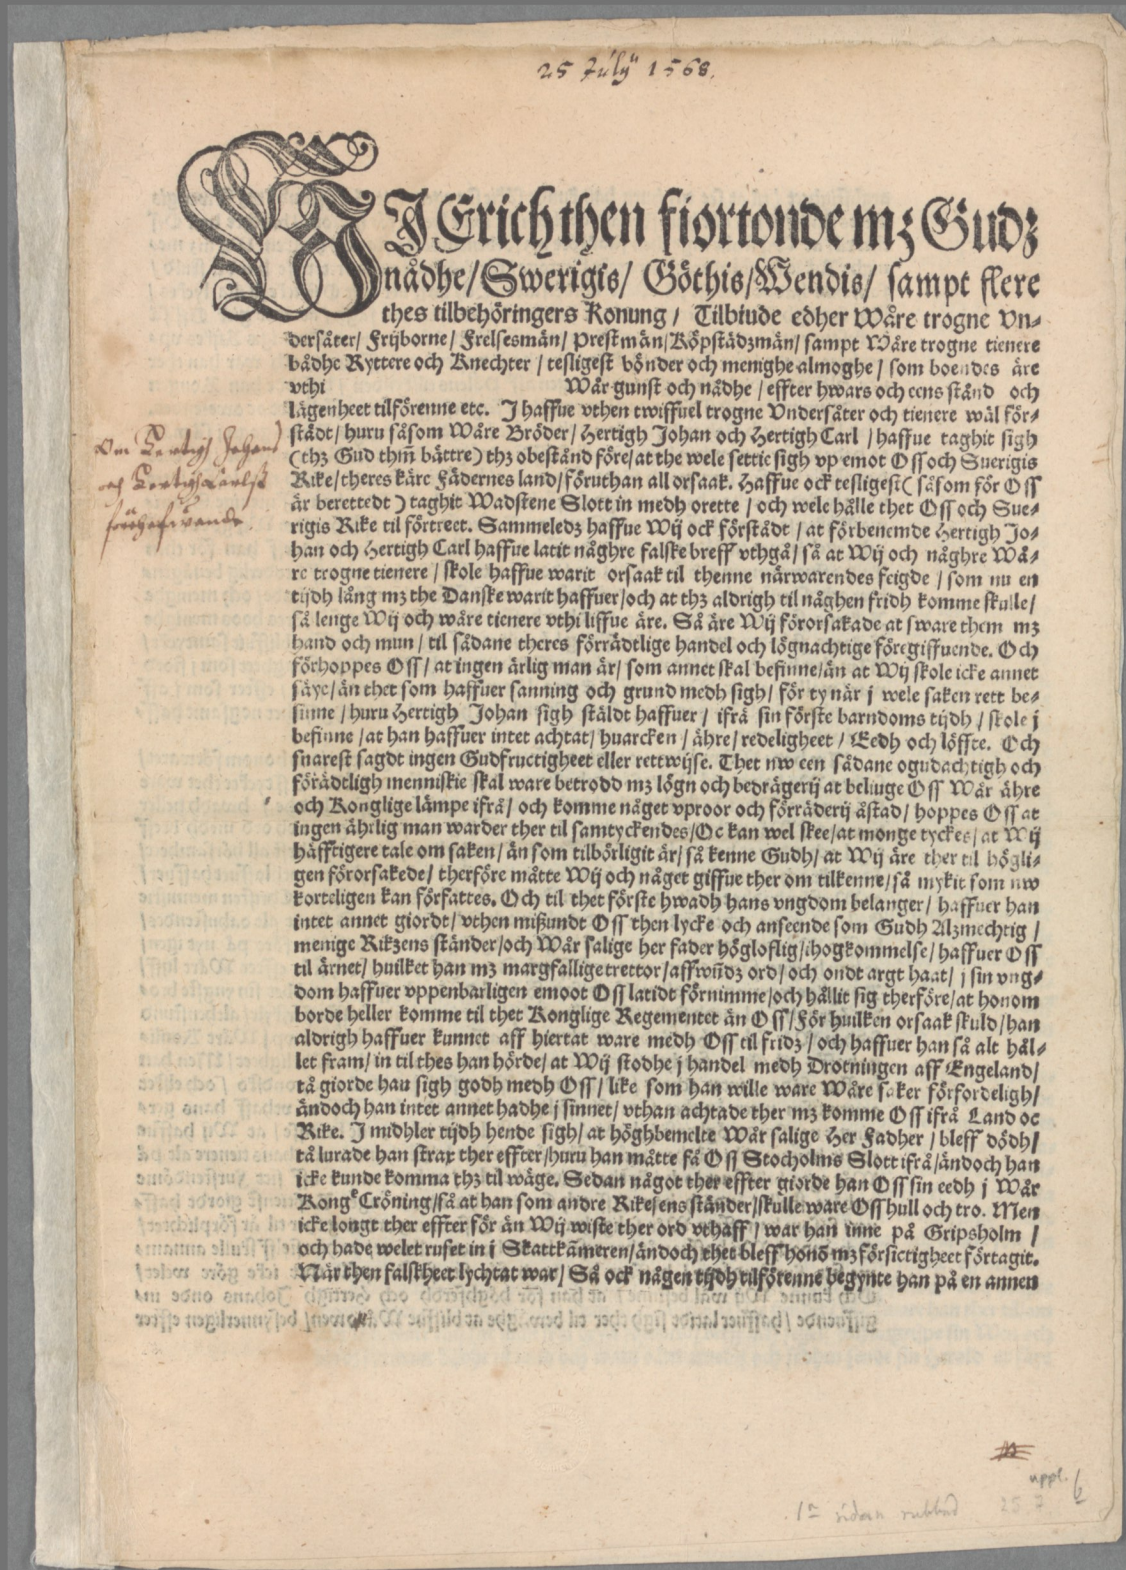 25 Julÿ 1568.
WJ Erich then fiortonde mz Gudz
nådhe/ Swerigis/ Göthis/ Wendis/ sampt flere
thes tilbehöringers Konung / Tilbiude edher Wåre trogne Vn-
dersåter/ Frijborne/ Frelsesmän/ Prestmän/ Köpstädzmän/ sampt Wåre trogne tienere
bådhe Ryttere och Knechter / tesligest bönder och menighe almoghe / som boendes äre
vthi Wår gunst och nådhe / effter hwars och eens stånd och
lägenheet tilförenne etc. J haffue vthen twiffuel trogne Vndersåter och tienere wäl för-
städt/ huru såsom Wåre Bröder/ Hertigh Johan och Hertigh Carl / haffue taghit sigh
(thz Gud thm̃ bättre) thz obestånd före/ at the wele settie sigh vp emot Oss och Suerigis
Rike/ theres käre Fädernes land/ föruthan all orsaak. Haffue ock tesligest ( såsom för Oss
är berettedt ) taghit Wadstene Slott in medh orette / och wele hålle thet Oss och Sue-
rigis Rike til förtreet. Sammeledz haffue Wij ock förstådt / at förbenemde Hertigh Jo-
han och Hertigh Carl haffue latit någhre falske breff vthgå/ så at Wij och någhre Wå-
re trogne tienere / skole haffue warit orsaak til thenne närwarendes feigde / som nu en
tijdh lång mz the Danske warit haffuer/ och at thz aldrigh til någhen fridh komme skulle/
så lenge Wij och wåre tienere vthi liffue äre. Så äre Wij förorsakade at sware them mz
hand och mun / til sådane theres förrädtlige handel och lögnachtige föregiffuende. Och
förhoppes Oss / at ingen ärlig man är/ som annet skal befinne/ än at Wij skole icke annet
säye/ än thet som haffuer sanning och grund medh sigh/ för ty när j wele saken rett be-
sinne / huru Hertigh Johan sigh stäldt haffuer / ifrå sin förste barndoms tijdh / skole j
befinne / at han haffuer intet achtat/ huarcken / ähre/ redeligheet / Eedh och löffte. Och
snarest sagdt ingen Gudfructigheet eller rettwijse. Thet nw een sådane ogudachtigh och
förädtligh menniskie skal ware betrodd mz lögn och bedrägerij at beliuge Oss Wår ähre
och Konglige lämpe ifrå/ och komme någet vproor och förräderij åstad/ hoppes Oss at
ingen ährlig man warder ther til samtyckendes/ Oc kan wel skee/ at monge tyckes/ at Wij
häfftigere tale om saken/ än som tilbörligit är/ så kenne Gudh/ at Wij äre ther til högli-
gen förorsakede/ therföre måtte Wij och någet giffue ther om tilkenne/ så mykit som nw
korteligen kan författes. Och til thet förste hwadh hans vngdom belanger/ haffuer han
intet annet giordt/ vthen mißundt Oss then lycke och anseende som Gudh Alzmechtig /
menige Rikzens ständer/ och Wår salige her fader högloflig/ ihogkommelse/ haffuer Oss
til ärnet/ huilket han mz margfallige trettor/ affwũdz ord/ och ondt argt haat/ j sin vng-
dom haffuer vppenbarligen emoot Oss latidt förnimme/ och hållit sig therföre/ at honom
borde heller komme til thet Konglige Regementet än Oss/ För huilken orsaak skuld/ han
aldrigh haffuer kunnet aff hiertat ware medh Oss til fridz / och haffuer han så alt hål-
let fram/ in til thes han hörde/ at Wij stodhe j handel medh Drotningen aff Engeland/
tå giorde han sigh godh medh Oss/ like som han wille ware Wåre saker förfordeligh/
ändoch han intet annet hadhe j sinnet/ vthan achtade ther mz komme Oss ifrå Land oc
Rike. J midhler tijdh hende sigh/ at höghbemelte Wår salige Her Fadher / bleff dödh/
tå lurade han strax ther effter/ huru han måtte få Oss Stocholms Slott ifrå/ ändoch han
icke kunde komma thz til wäge. Sedan något ther effter giorde han Oss sin eedh j Wår
Kongͤ Cröning/ så at han som andre Rikesens ständer/ skulle ware Oss hull och tro. Men
icke longt ther effter för än Wij wiste ther ord vthaff / war han inne på Gripsholm /
och hade welet rufet in i Skattkãmeren/ ändoch thet bleff honõ mz försictigheet förtagit.
När then falskheet lychtat war/ Så ock någen tijdh tilförenne begynte han på en annen
Om Hertigh Johans
och Hertigh Carlss
förehafwande.
uppl.
1:a sidan rubbad 25.7